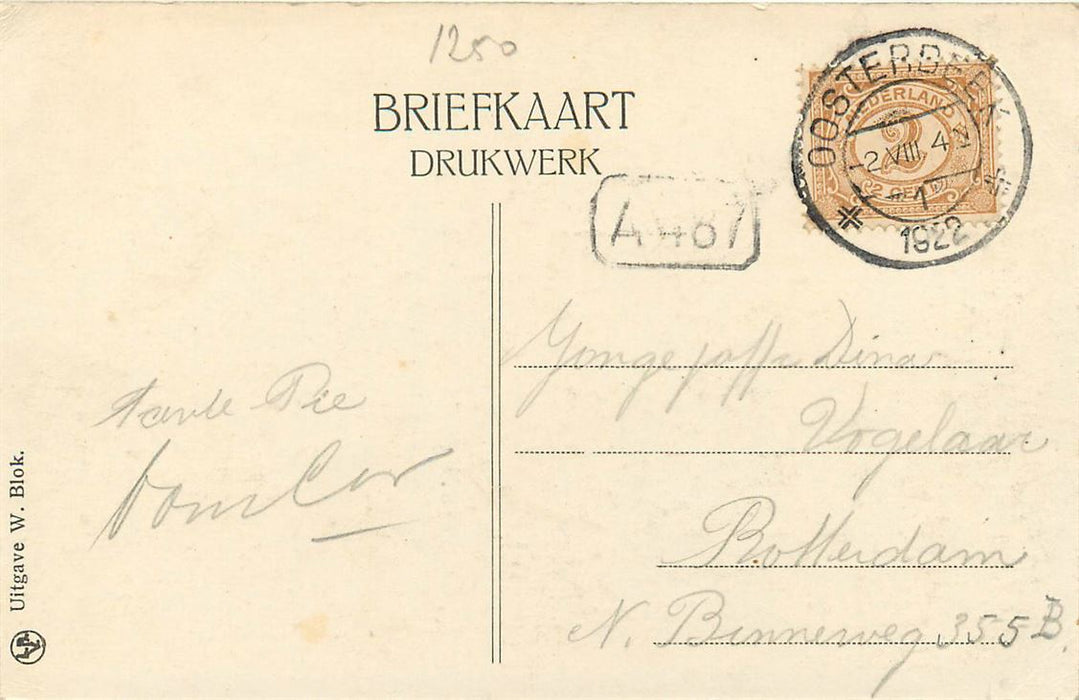 1250
BRIEFKAART
DRUKWERK
OOSTERBEEK
-2.VIII. 4 N
1
1922
NEDERLAND
2
2 CENT
A 487
Tante Pie
oom Cor.
Jonge juffr Dina
Vogelaar
Rotterdam
N. Binnenweg 355B.
Uitgave W. Blok.